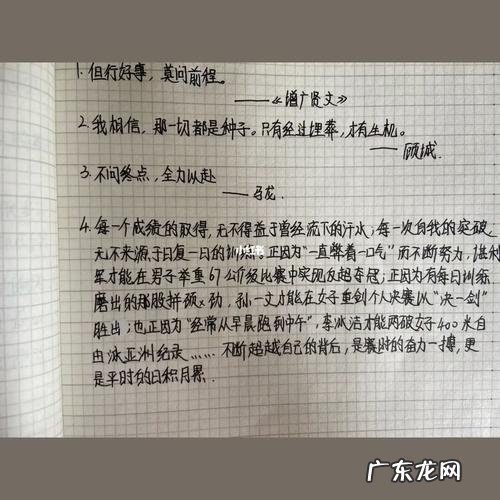 1. 但行好事，莫问前程。
——《增广贤文》
2. 我相信，那一切都是种子。只有经过埋葬，才有生机。
——顾城.
3. 不问终点，全力以赴
——马龙.
4. 每一个成绩的取得，无不得益于曾经流下的汗水；每一次自我的突破，
无不来源于日复一日的训练。正因为“一直憋着一口气”而不断努力，谌利
军才能在男子举重67公斤级比赛中实现反超夺冠；正因为有每日训练
磨出的那股拼頞x劲，孙一文才能在女子重剑个人决赛以“决一剑”
胜出；也正因为“经常从早晨跑到中午”，李冰洁才能两破女子400米自
由泳亚洲纪录…… 不断超越自己的背后，是赛时的奋力一搏，更
是平时的日积月累.
小红书
广东龙网